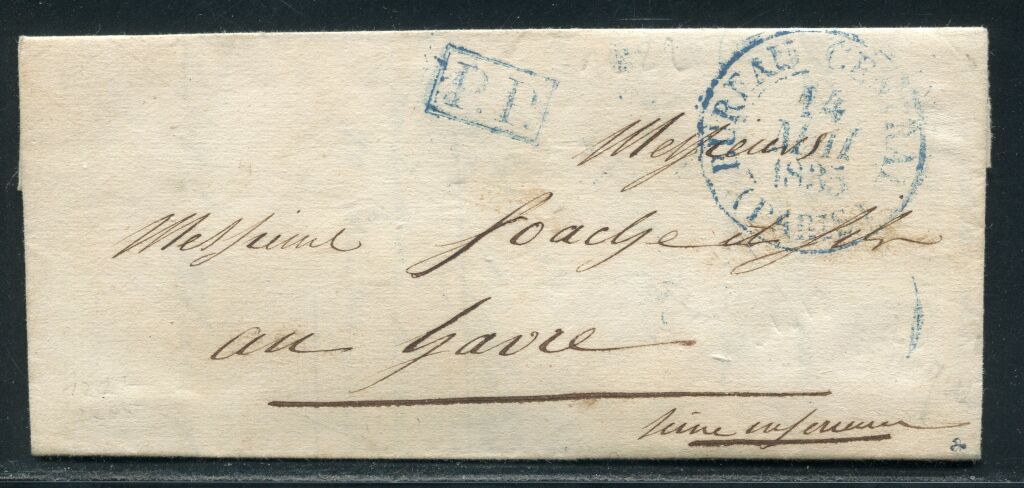 P.P.
BUREAU CENTRAL
14
MAI
1835
(PARIS)
Messieurs
Messieurs Foache et fils
au havre
Seine inferieure